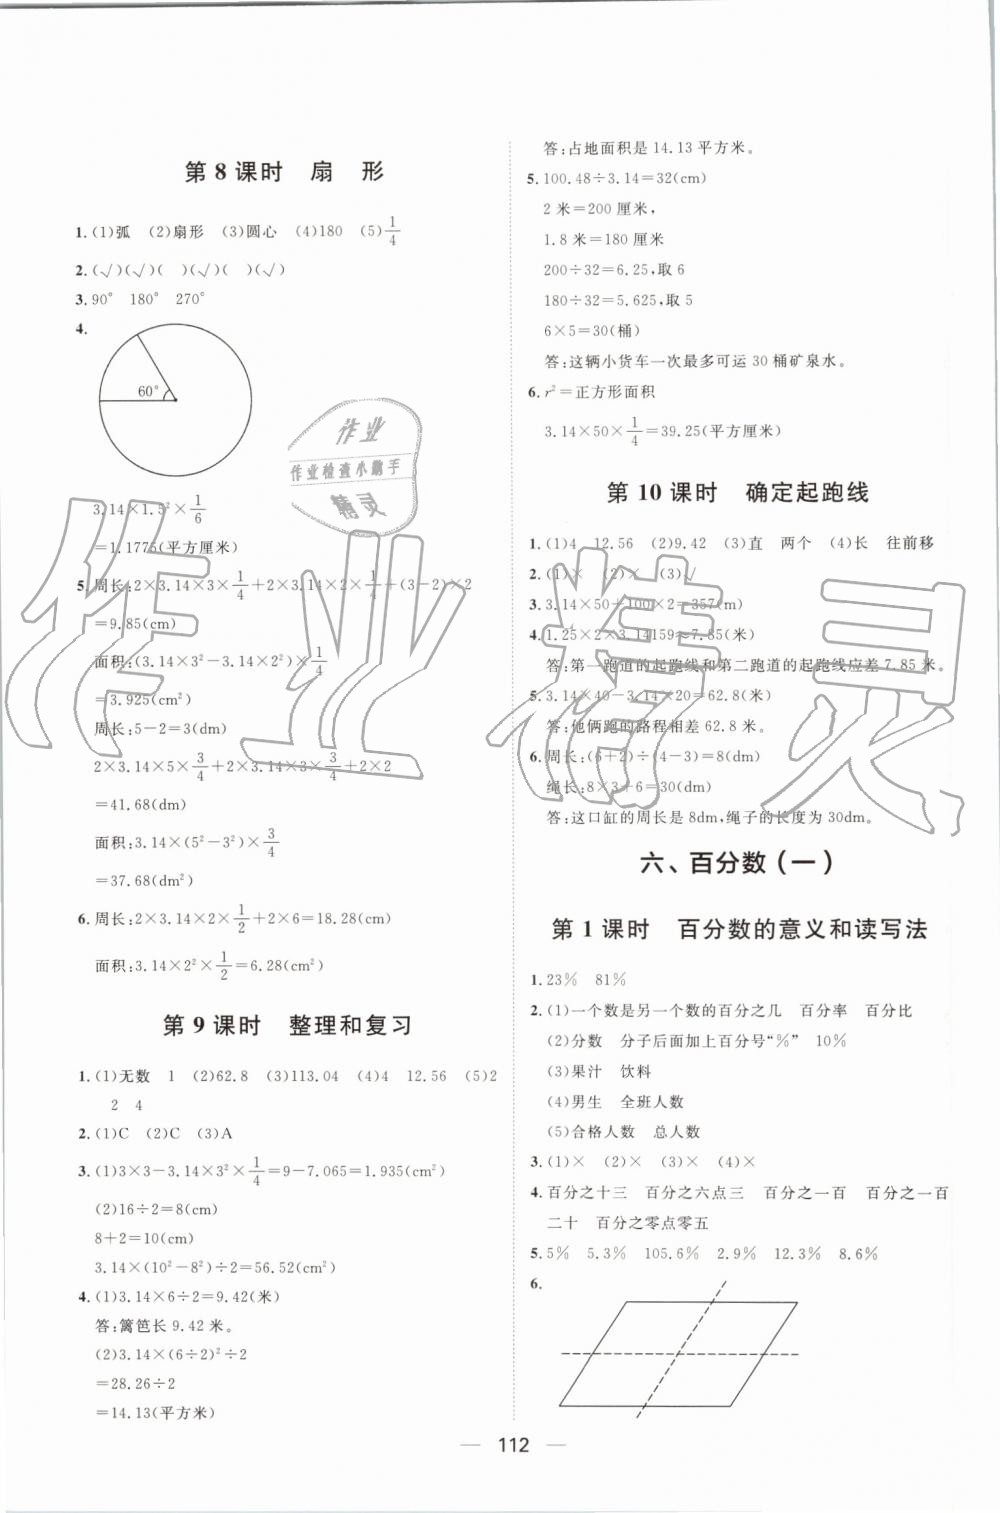 第 8 课时 扇 形
1. (1)弧 (2)扇形 (3)圆心 (4)180 (5)1/4
2. (√)(√)( )(√)( )(√)
3. 90° 180° 270°
4.
60°
3.14×1.5²×1/6
=1.1775(平方厘米)
5. 周长:2×3.14×3×1/4+2×3.14×2×1/4+(3-2)×2
=9.85(cm)
面积:(3.14×3²-3.14×2²)×1/4
=3.925(cm²)
周长:5-2=3(dm)
2×3.14×5×3/4+2×3.14×3×3/4+2×2
=41.68(dm)
面积:3.14×(5²-3²)×3/4
=37.68(dm²)
6. 周长:2×3.14×2×1/2+2×6=18.28(cm)
面积:3.14×2²×1/2=6.28(cm²)
第 9 课时 整理和复习
1. (1)无数 1 (2)62.8 (3)113.04 (4)4 12.56 (5)2
2 4
2. (1)C (2)C (3)A
3. (1)3×3-3.14×3²×1/4=9-7.065=1.935(cm²)
(2)16÷2=8(cm)
8+2=10(cm)
3.14×(10²-8²)÷2=56.52(cm²)
4. (1)3.14×6÷2=9.42(米)
答:篱笆长 9.42 米。
(2)3.14×(6÷2)²÷2
=28.26÷2
=14.13(平方米)
答:占地面积是 14.13 平方米。
5. 100.48÷3.14=32(cm)
2 米=200 厘米,
1.8 米=180 厘米
200÷32=6.25,取 6
180÷32=5.625,取 5
6×5=30(桶)
答:这辆小货车一次最多可运 30 桶矿泉水。
6. r²=正方形面积
3.14×50×1/4=39.25(平方厘米)
第 10 课时 确定起跑线
1. (1)4 12.56 (2)9.42 (3)直 两个 (4)长 往前移
2. (1)× (2)× (3)√
3. 3.14×50+100×2=357(m)
4. 1.25×2×3.14159≈7.85(米)
答:第一跑道的起跑线和第二跑道的起跑线应差 7.85 米。
5. 3.14×40-3.14×20=62.8(米)
答:他俩跑的路程相差 62.8 米。
6. 周长:(6+2)÷(4-3)=8(dm)
绳长:8×3+6=30(dm)
答:这口缸的周长是 8dm,绳子的长度为 30dm。
六、百分数(一)
第 1 课时 百分数的意义和读写法
1. 23% 81%
2. (1)一个数是另一个数的百分之几 百分率 百分比
(2)分数 分子后面加上百分号“%” 10%
(3)果汁 饮料
(4)男生 全班人数
(5)合格人数 总人数
3. (1)× (2)× (3)× (4)×
4. 百分之十三 百分之六点三 百分之一百 百分之一百
二十 百分之零点零五
5. 5% 5.3% 105.6% 2.9% 12.3% 8.6%
6.
作业
作业检查小助手
精灵
作业精灵
— 112 —